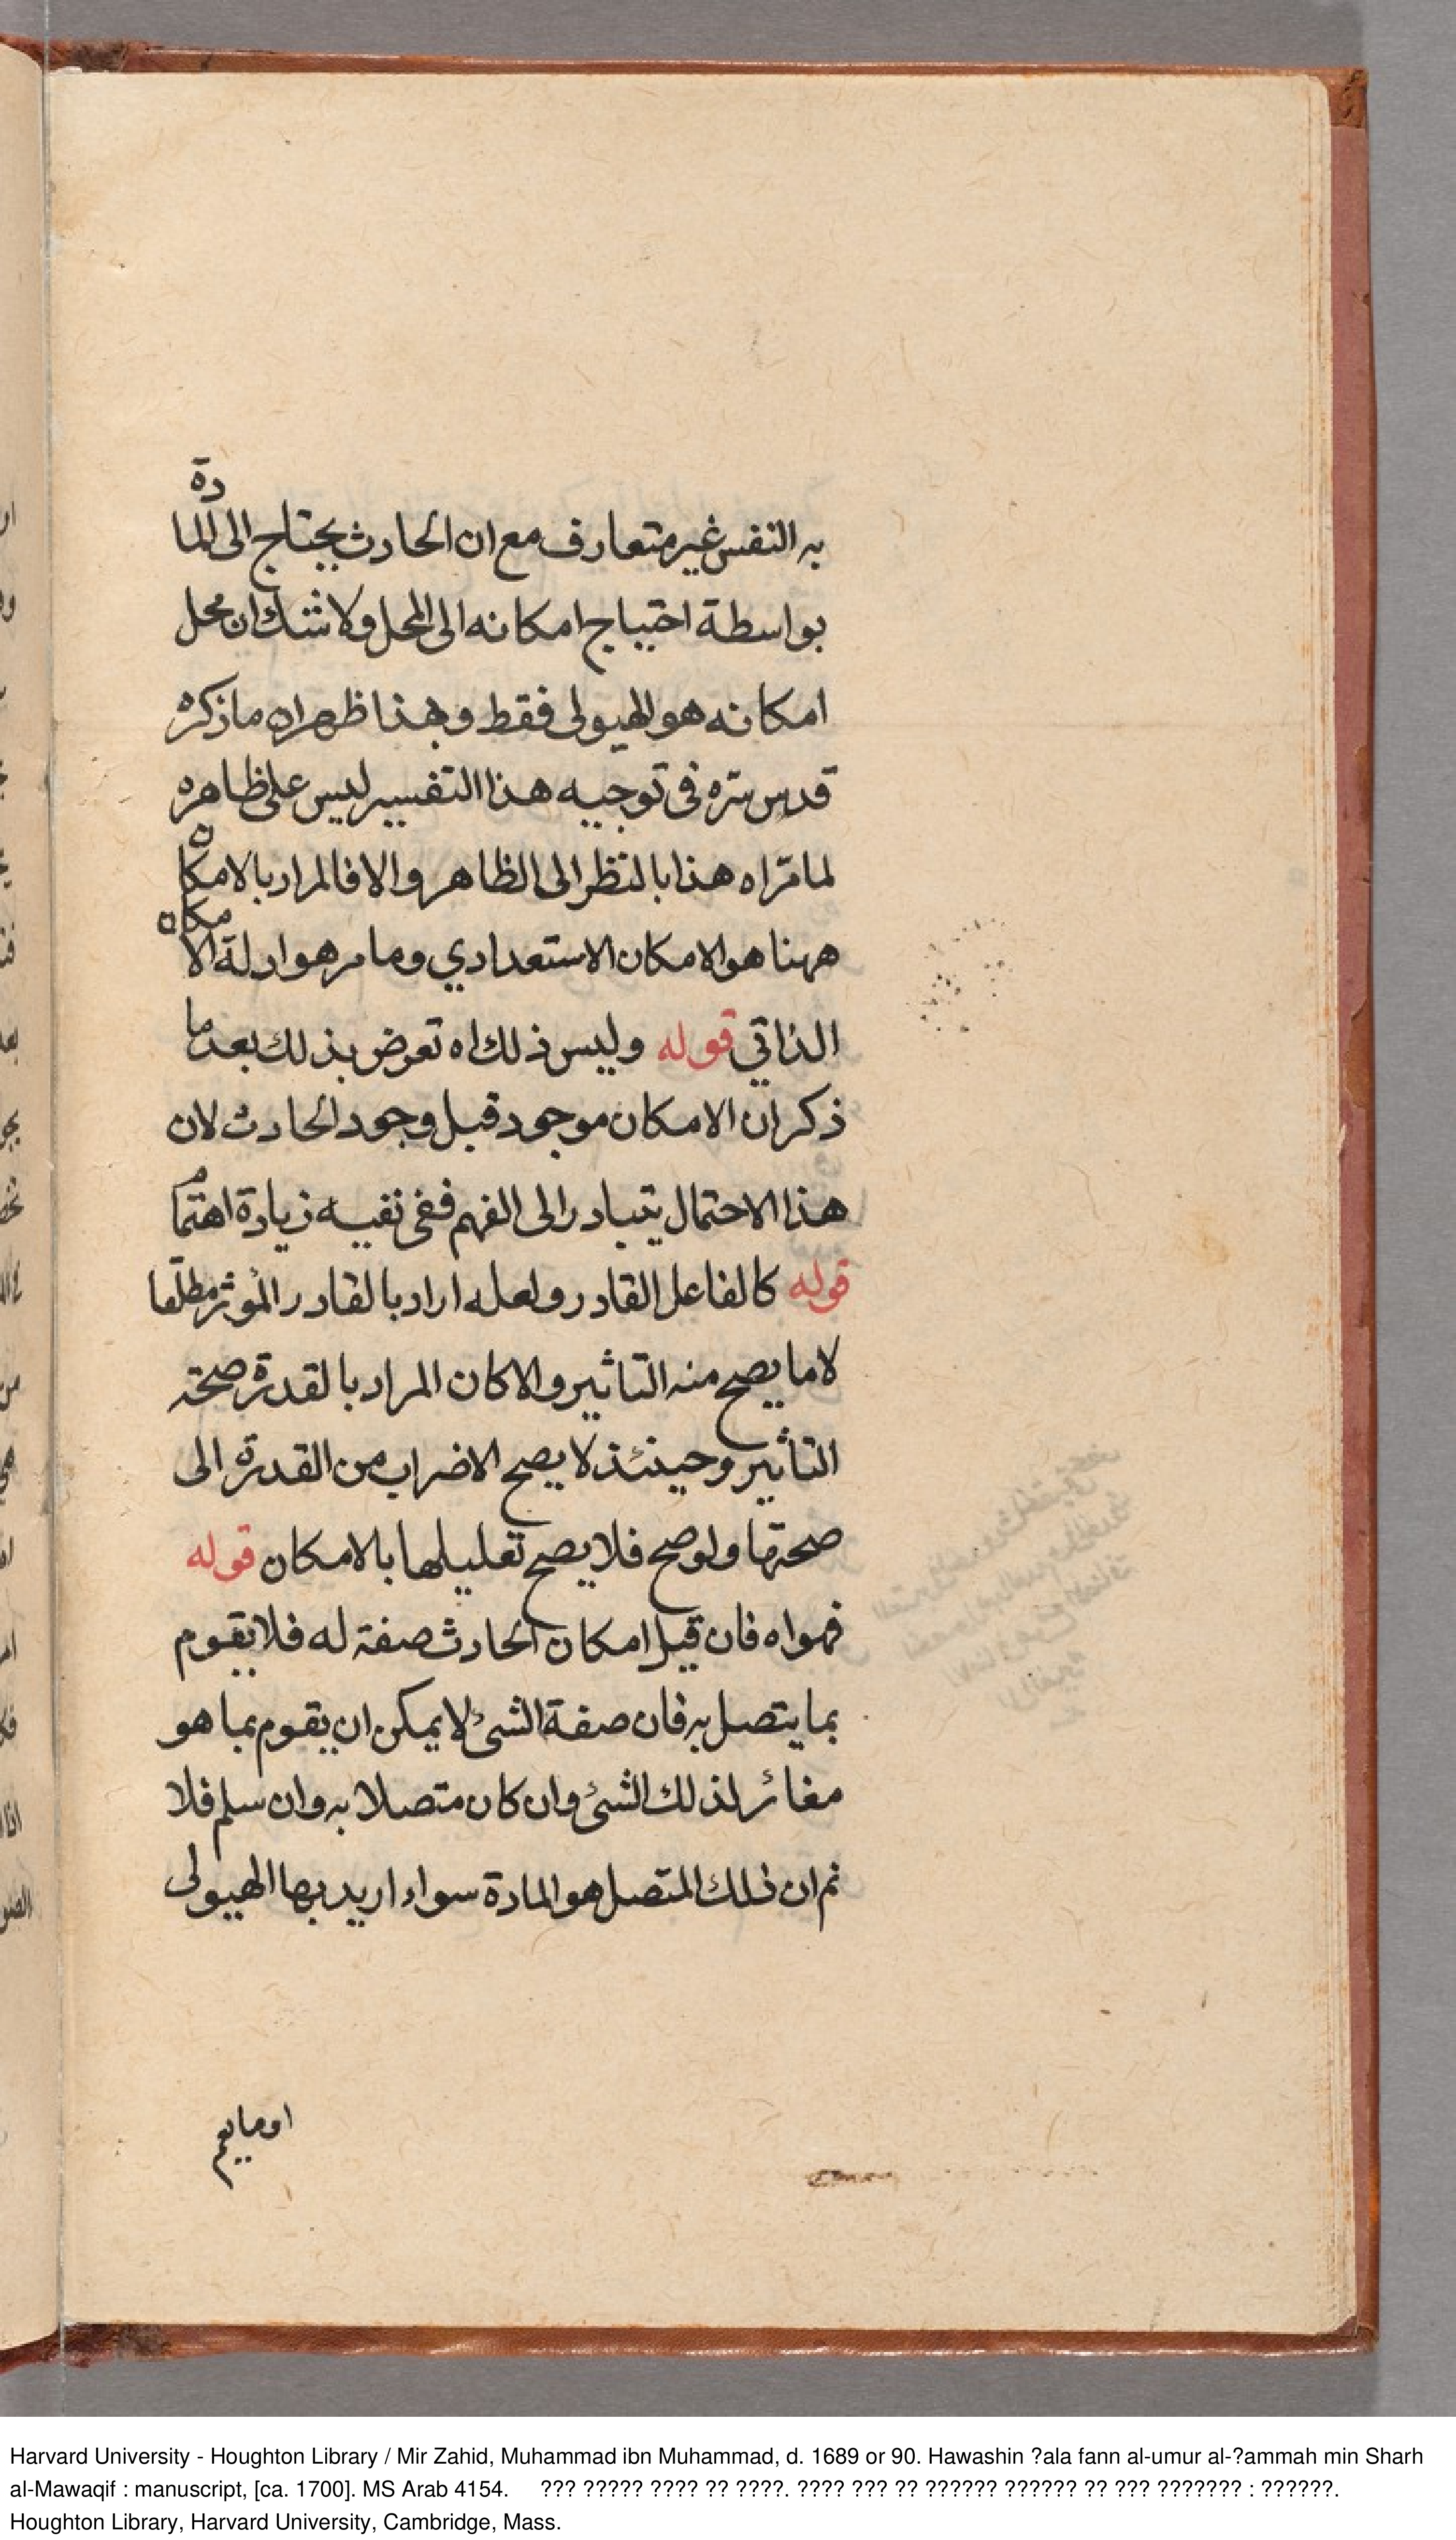 به النفس غير متعارف مع ان الحادث يحتاج الى المادة
بواسطة احتياج امكانه الى المحل ولا شك ان محل
امكانه هو الهيولى فقط وبهذا ظهر ان ما ذكره
قدس سره فى توجيه هذا التفسير ليس على ظاهره
لما مر اه هذا بالنظر الى الظاهر والا فالمراد بالامكان
ههنا هو الامكان الاستعدادي وما مر هو ادلة الامكان
الذاتي قوله وليس ذلك اه تعرض بذلك بعد ما
ذكر ان الامكان موجود قبل وجود الحادث لان
هذا الاحتمال يتبادر الى الفهم ففى نفيه زيادة اهتمام
قوله كالفاعل القادر ولعله اراد بالقادر المؤثر مطلقا
لا ما يصح منه التاثير والا كان المراد بالقدرة صحة
التاثير وحينئذ لا يصح الاضراب من القدرة الى
صحتها ولو صح فلا يصح تعليلها بالامكان قوله
فهو اه فان قيل امكان الحادث صفة له فلا يقوم
بما يتصل به فان صفة الشئ لا يمكن ان يقوم بما هو
مغائر لذلك الشئ وان كان متصلا به وان سلم فلا
نم ان ذلك المتصل هو المادة سواء اريد بها الهيولى
او ما يعم
Harvard University - Houghton Library / Mir Zahid, Muhammad ibn Muhammad, d. 1689 or 90. Hawashin ?ala fann al-umur al-?ammah min Sharh
al-Mawaqif : manuscript, [ca. 1700]. MS Arab 4154. ??? ????? ???? ?? ????. ???? ??? ?? ?????? ?????? ?? ??? ??????? : ??????.
Houghton Library, Harvard University, Cambridge, Mass.